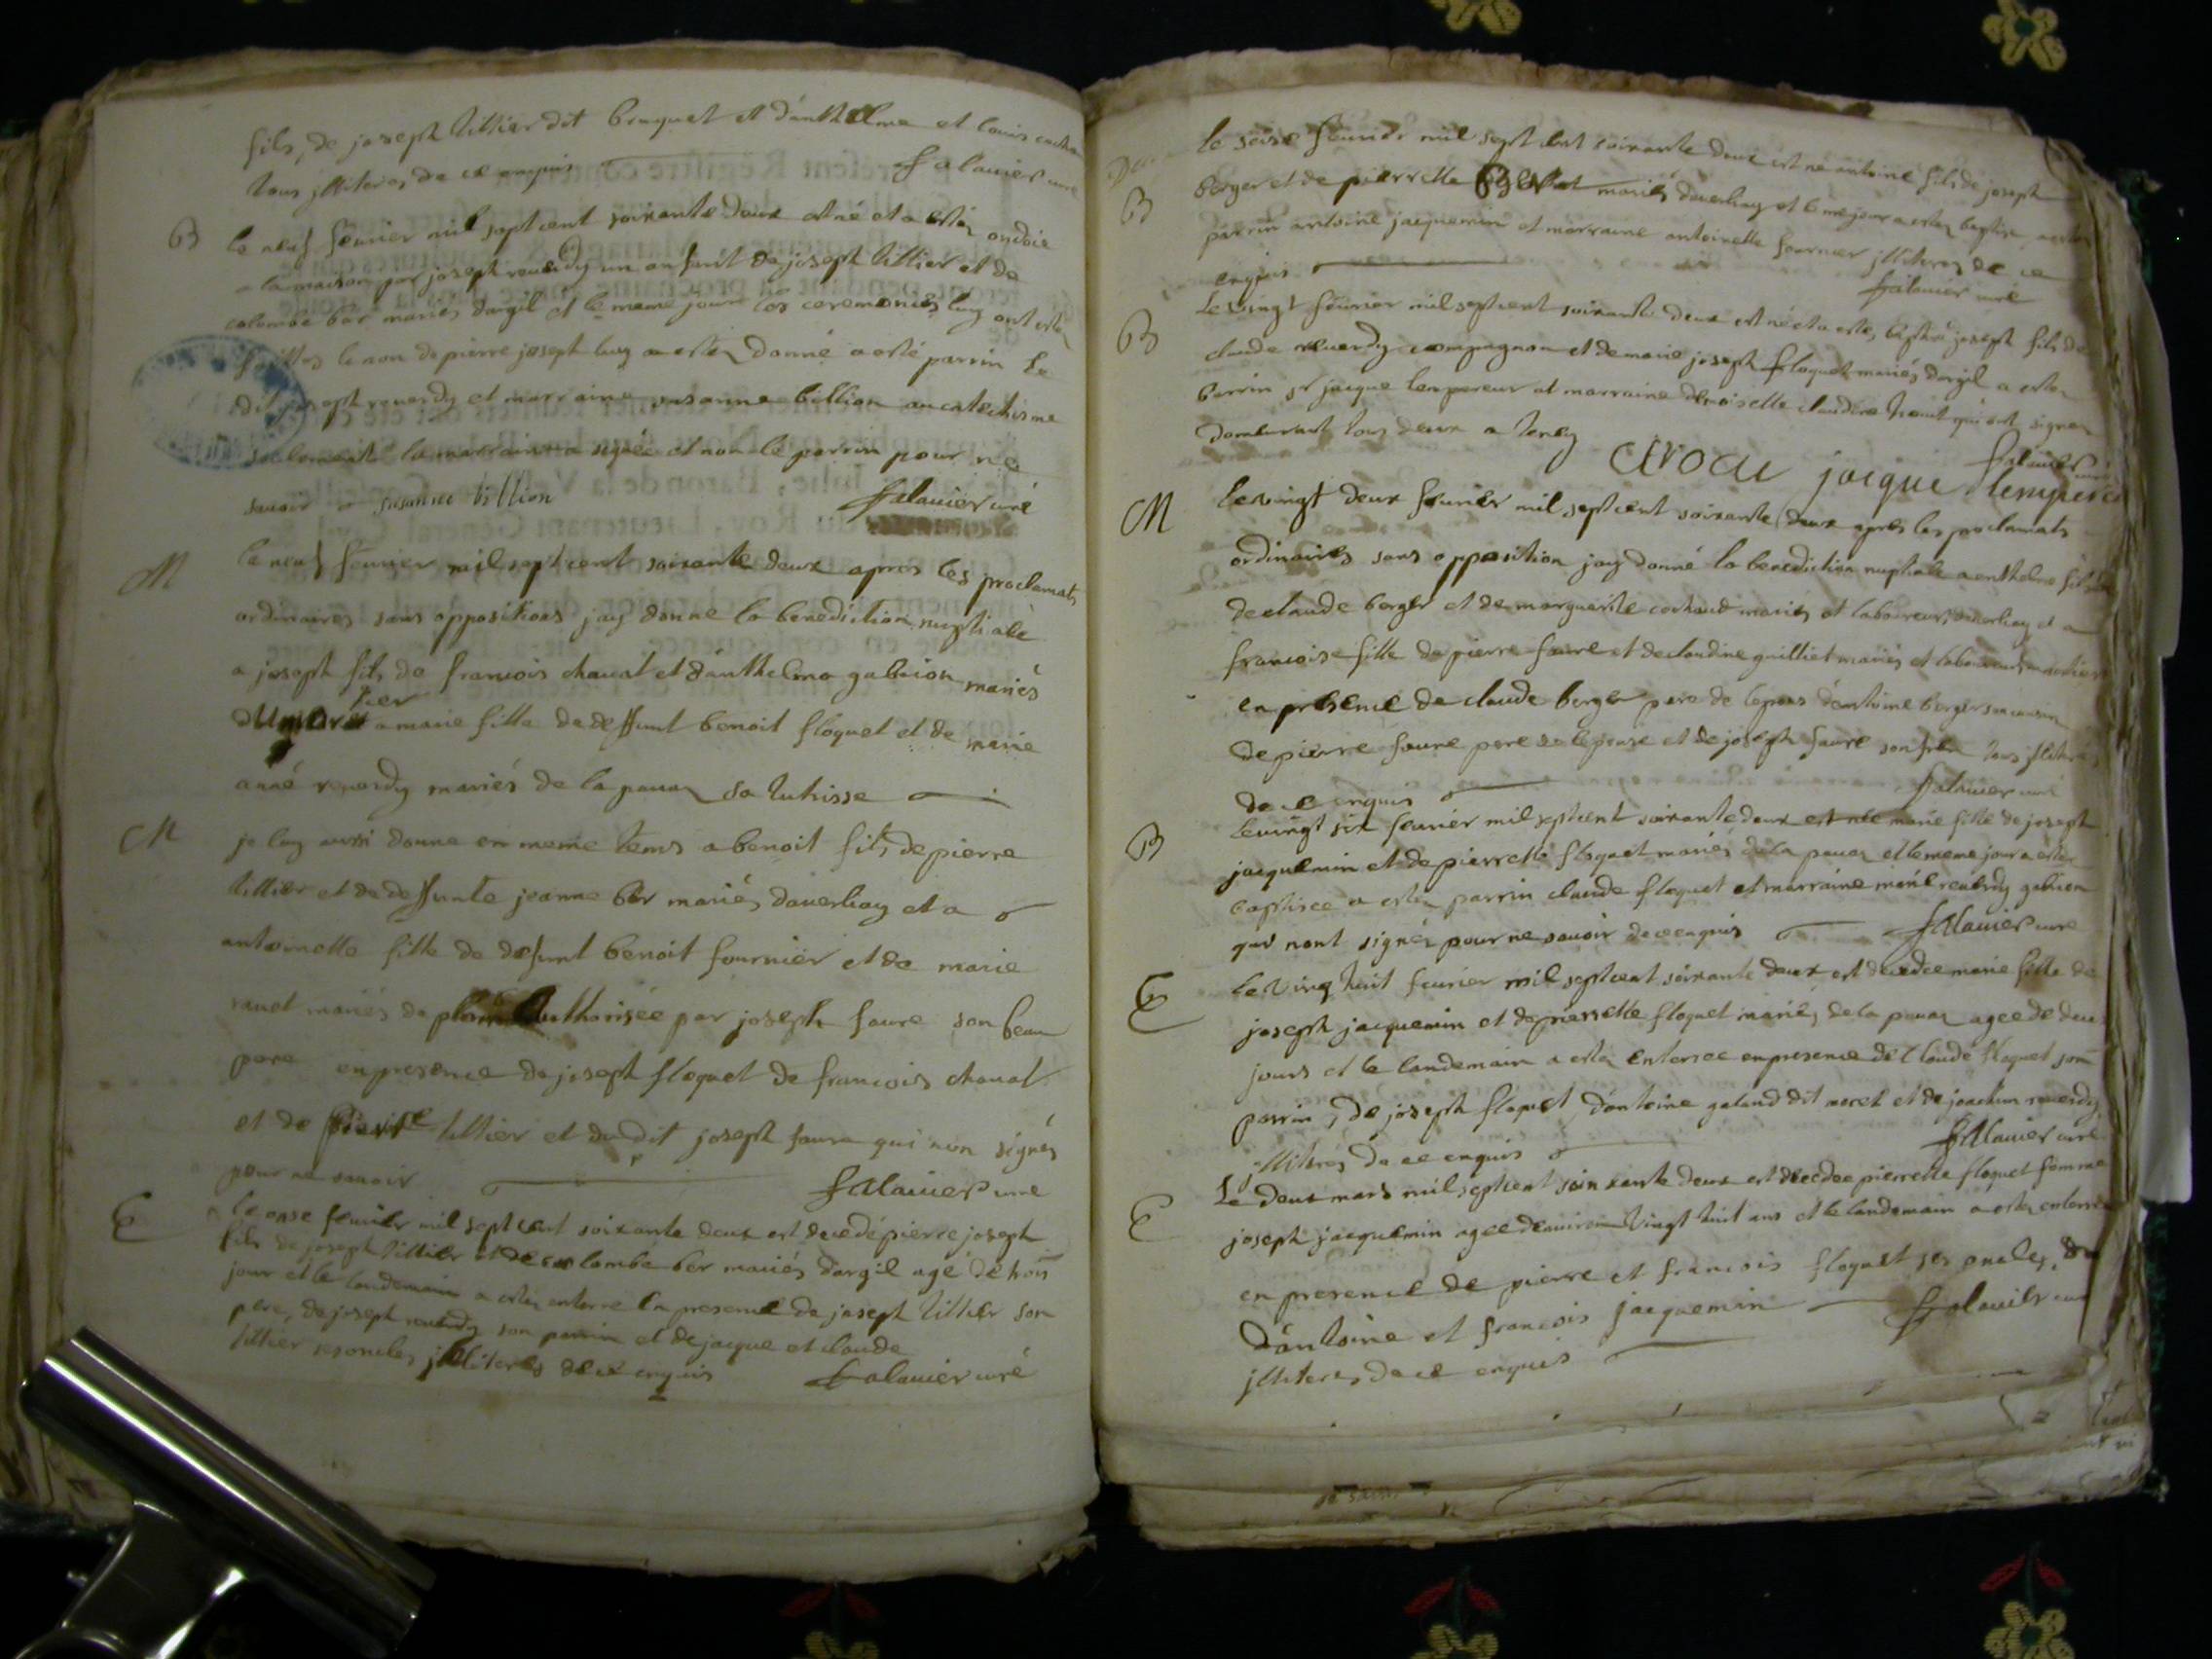 fils, de joseph tillier dit bruquet et d'anthelme et louis
tous jlliteres de ce enquis falavier curé
B le neuf feuvrier mil sept cent soixante deux est né et a estez ondoié
a la maison par joseph reuerdy un enfant de joseph tillier et de
colombe ber mariés dargil et le meme jour les ceremonies luy ont estez
le nom de pierre joseph luy a estez donné a esté parrin le
dit joseph reuerdy et marraine susanne billion au catechisme
seulement la marraine a signée et non le parrin pour ne
savoir susanne billion falavier curé
M le neuf feuvrier mil sept cent soixante deux apres les proclamats
ordinaires sans oppositions jay donne la benediction nuptiale
a joseph fils de francois chavat et danthelme gabrion mariés
a marie fille de deffunt benoit floquet et de marie
anne reverdy mariés de la pavaz
M je lay aussi donne en meme tems a benoit fils de pierre
tillier et de deffunte jeanne ber mariés daverliay et a
antoinette fille de defunt benoit fournier et de marie
mariés de authorisée par joseph faure son beau
pere en presence de joseph floquet de francois chavat
et de pierre tillier et du dit joseph faure qui non signés
pour ne savoir falavier curé
E le onse feuvrier mil sept cent soixante deux est decedé pierre joseph
fils de joseph tillier et de colombe ber mariés dargil agé de trois
jour et le landemain a estez enterre en presence de joseph tillier son
pere, de joseph reuerdy son parrin et de jacque et claude
tillier ses oncles jlliteres de ce enquis falavier curé
le seise feuvrier mil sept cent soixante deux est né antoine fils de joseph
B berger et de pierrette mariés daverliay et le meme jour a estez baptisé a estez
parrin antoine jacquemin et marraine antoinette fournier jlliteres de ce
enquis falavier curé
B Le vingt feuvrier mil sept cent soixante deux est né et a estez baptisé joseph fils de
claude reuerdy compagnon et de marie joseph floquet mariés dargil a estez
parrin sr jacque lempereur et marraine demoiselle claudine qui ont signez
demeurant tous deux a falavier curé
jacque lempereur
M le vingt deux feuvrier mil sept cent soixante deux apres les proclamats
ordinaires sans opposition jay donné la benediction nuptiale a anthelme fils
de claude berger et de marguerite cochaud mariés et laboureurs daverliay et a
francoise fille de pierre faure et de claudine guilliet mariés et laboureurs
en presence de claude berger pere de lepous dantoine berger son cousin
de pierre faure pere de lepouse et de joseph faure son frere tous jlliteres
de ce enquis falavier curé
B le vingt six feuvrier mil sept cent soixante deux est née marie fille de joseph
jacquemin et de pierrette floquet mariés de la pavaz et le meme jour a estez
baptisee a estez parrin claude floquet et marraine marie reuerdy gabrion
qui nont signéz pour ne savoir de ce enquis falavier curé
E le vingt huit feuvrier mil sept cent soixante deux est decedee marie fille de
joseph jacquemin et de pierrette floquet mariés de la pavaz agee de deux
jours et le landemain a estez enterree en presence de claude floquet son
parrin, de joseph floquet, dantoine galand dit et de joachim reuerdy
jlliterés de ce enquis falavier curé
E Le deux mars mil sept cent soixante deux est decedee pierrette floquet femme
joseph jacquemin agee denviron vingt huit ans et le landemain a estez enterree
en presence de pierre et francois floquet ses oncles, de
d'antoine et francois jacquemin falavier curé
jlliteres de ce enquis